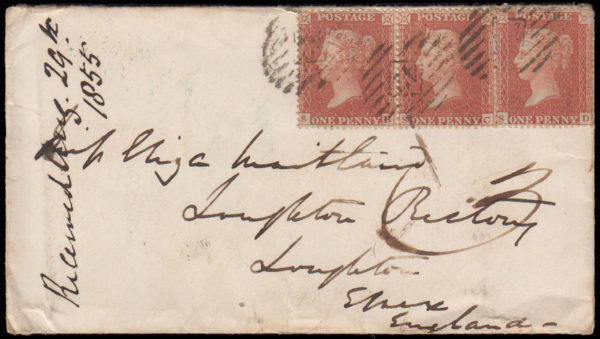 Received Aug. 29th
1855
POSTAGE POSTAGE POSTAGE
S ONE PENNY B S ONE PENNY C S ONE PENNY D
Miss Eliza Maitland
Loughton Rectory
Loughton
Essex
England
3